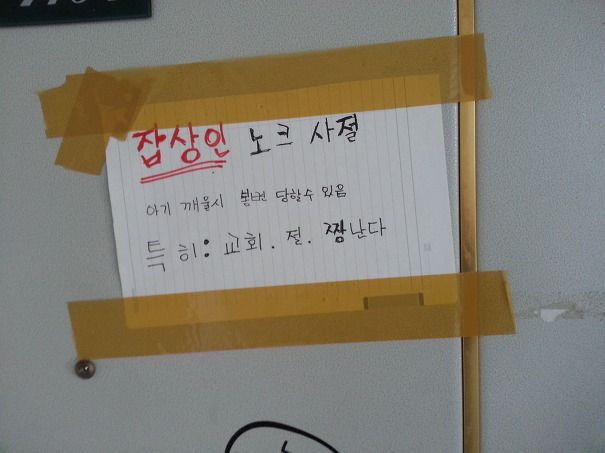 잡상인 노크 사절
아기 깨울시 봉변 당할수 있음
특히: 교회. 절. 짱난다